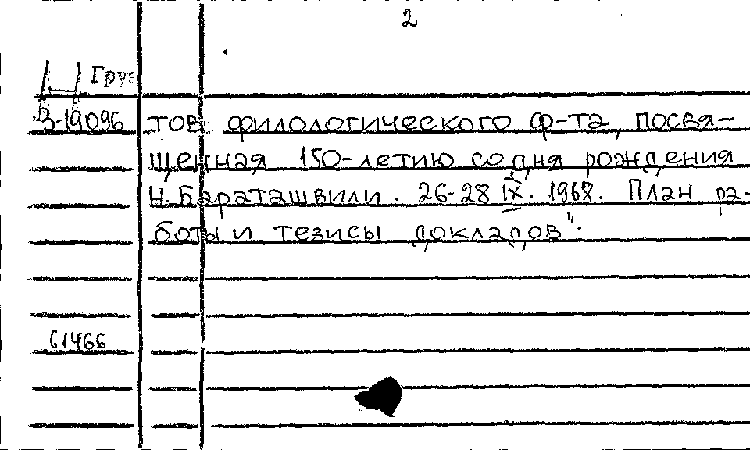 2
Груз
З-19096 тов филологического ф-та, посвя-
щенная 150-летию со дня рождения
Н. Бараташвили. 26-28 IX. 1968. План ра-
боты и тезисы докладов".
61466